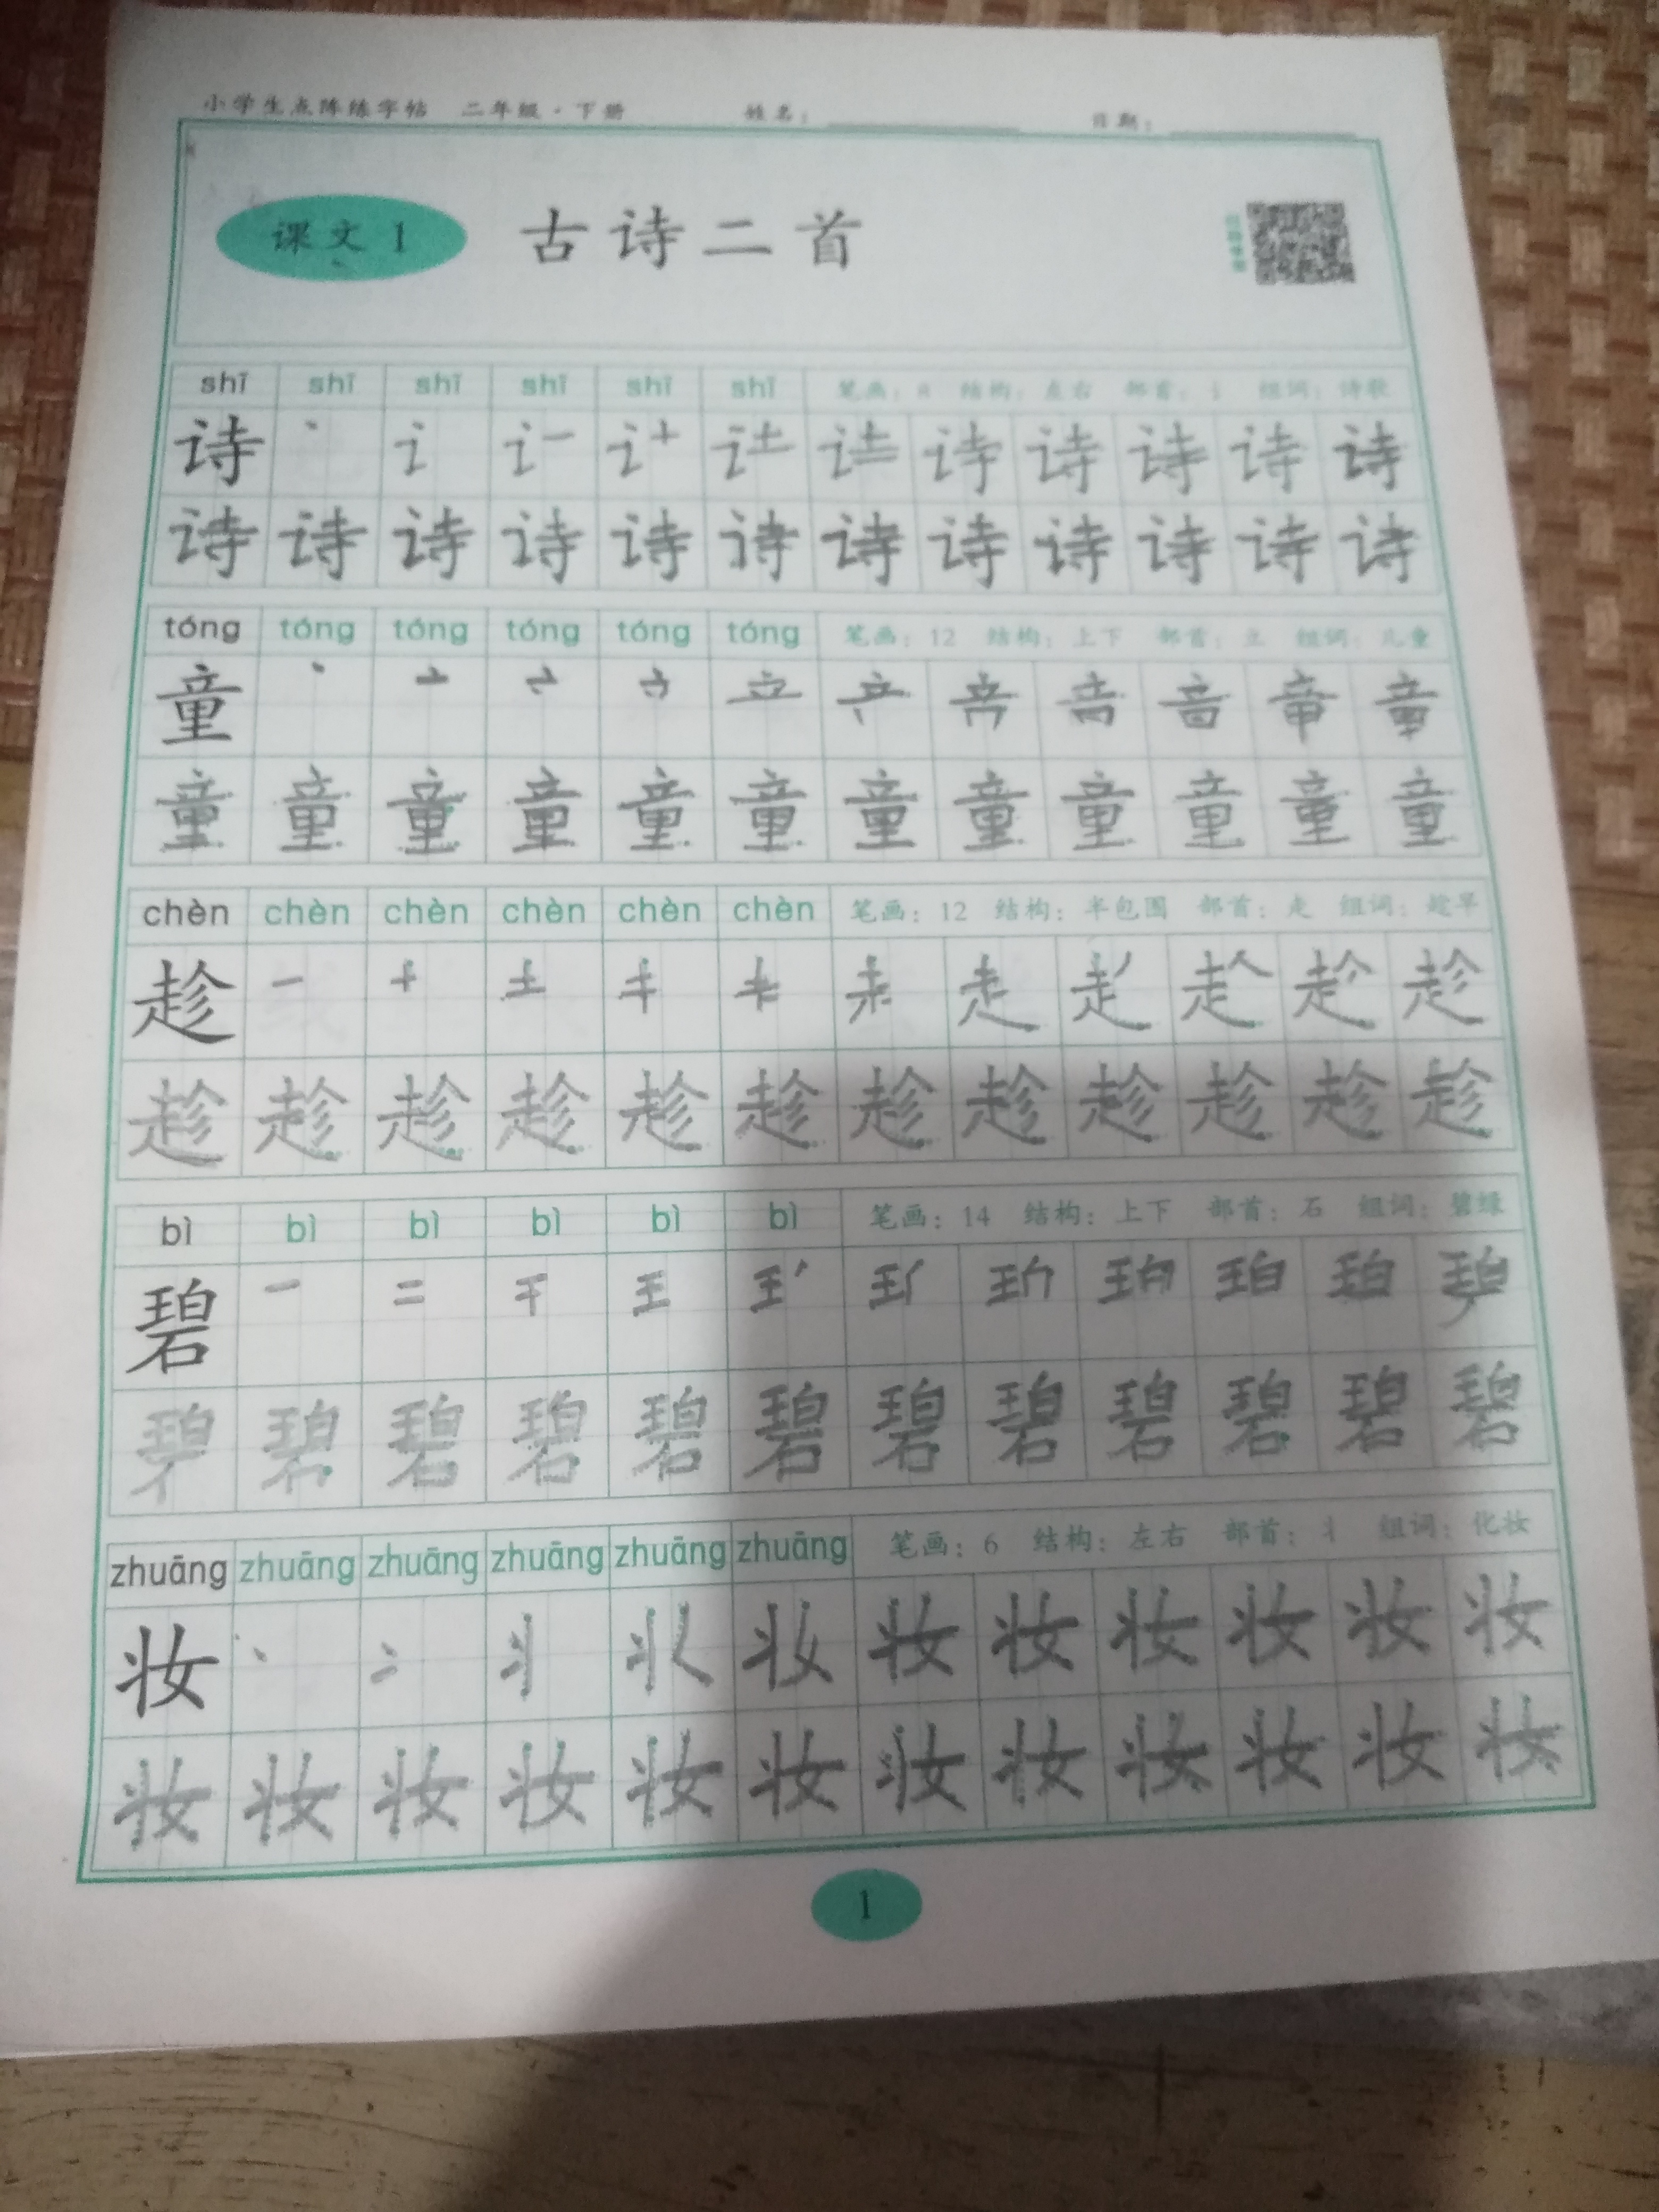 小学生点阵练字帖 二年级·下册 姓名： 日期：
课文1 古诗二首
shī shī shī shī shī shī 笔画：8 结构：左右 部首：讠 组词：诗歌
诗 诗 诗 诗 诗 诗
诗 诗 诗 诗 诗 诗 诗 诗 诗 诗 诗 诗
tóng tóng tóng tóng tóng tóng 笔画：12 结构：上下 部首：立 组词：儿童
童
童 童 童 童 童 童 童 童 童 童 童 童
chèn chèn chèn chèn chèn chèn 笔画：12 结构：半包围 部首：走 组词：趁早
趁 趁
趁 趁 趁 趁 趁 趁 趁 趁 趁 趁 趁 趁
bì bì bì bì bì bì 笔画：14 结构：上下 部首：石 组词：碧绿
碧
碧 碧 碧 碧 碧 碧 碧 碧 碧 碧
zhuāng zhuāng zhuāng zhuāng zhuāng zhuāng 笔画：6 结构：左右 部首：丬 组词：化妆
妆 妆 妆 妆 妆 妆 妆
妆 妆 妆 妆 妆 妆 妆 妆 妆 妆 妆 妆
1